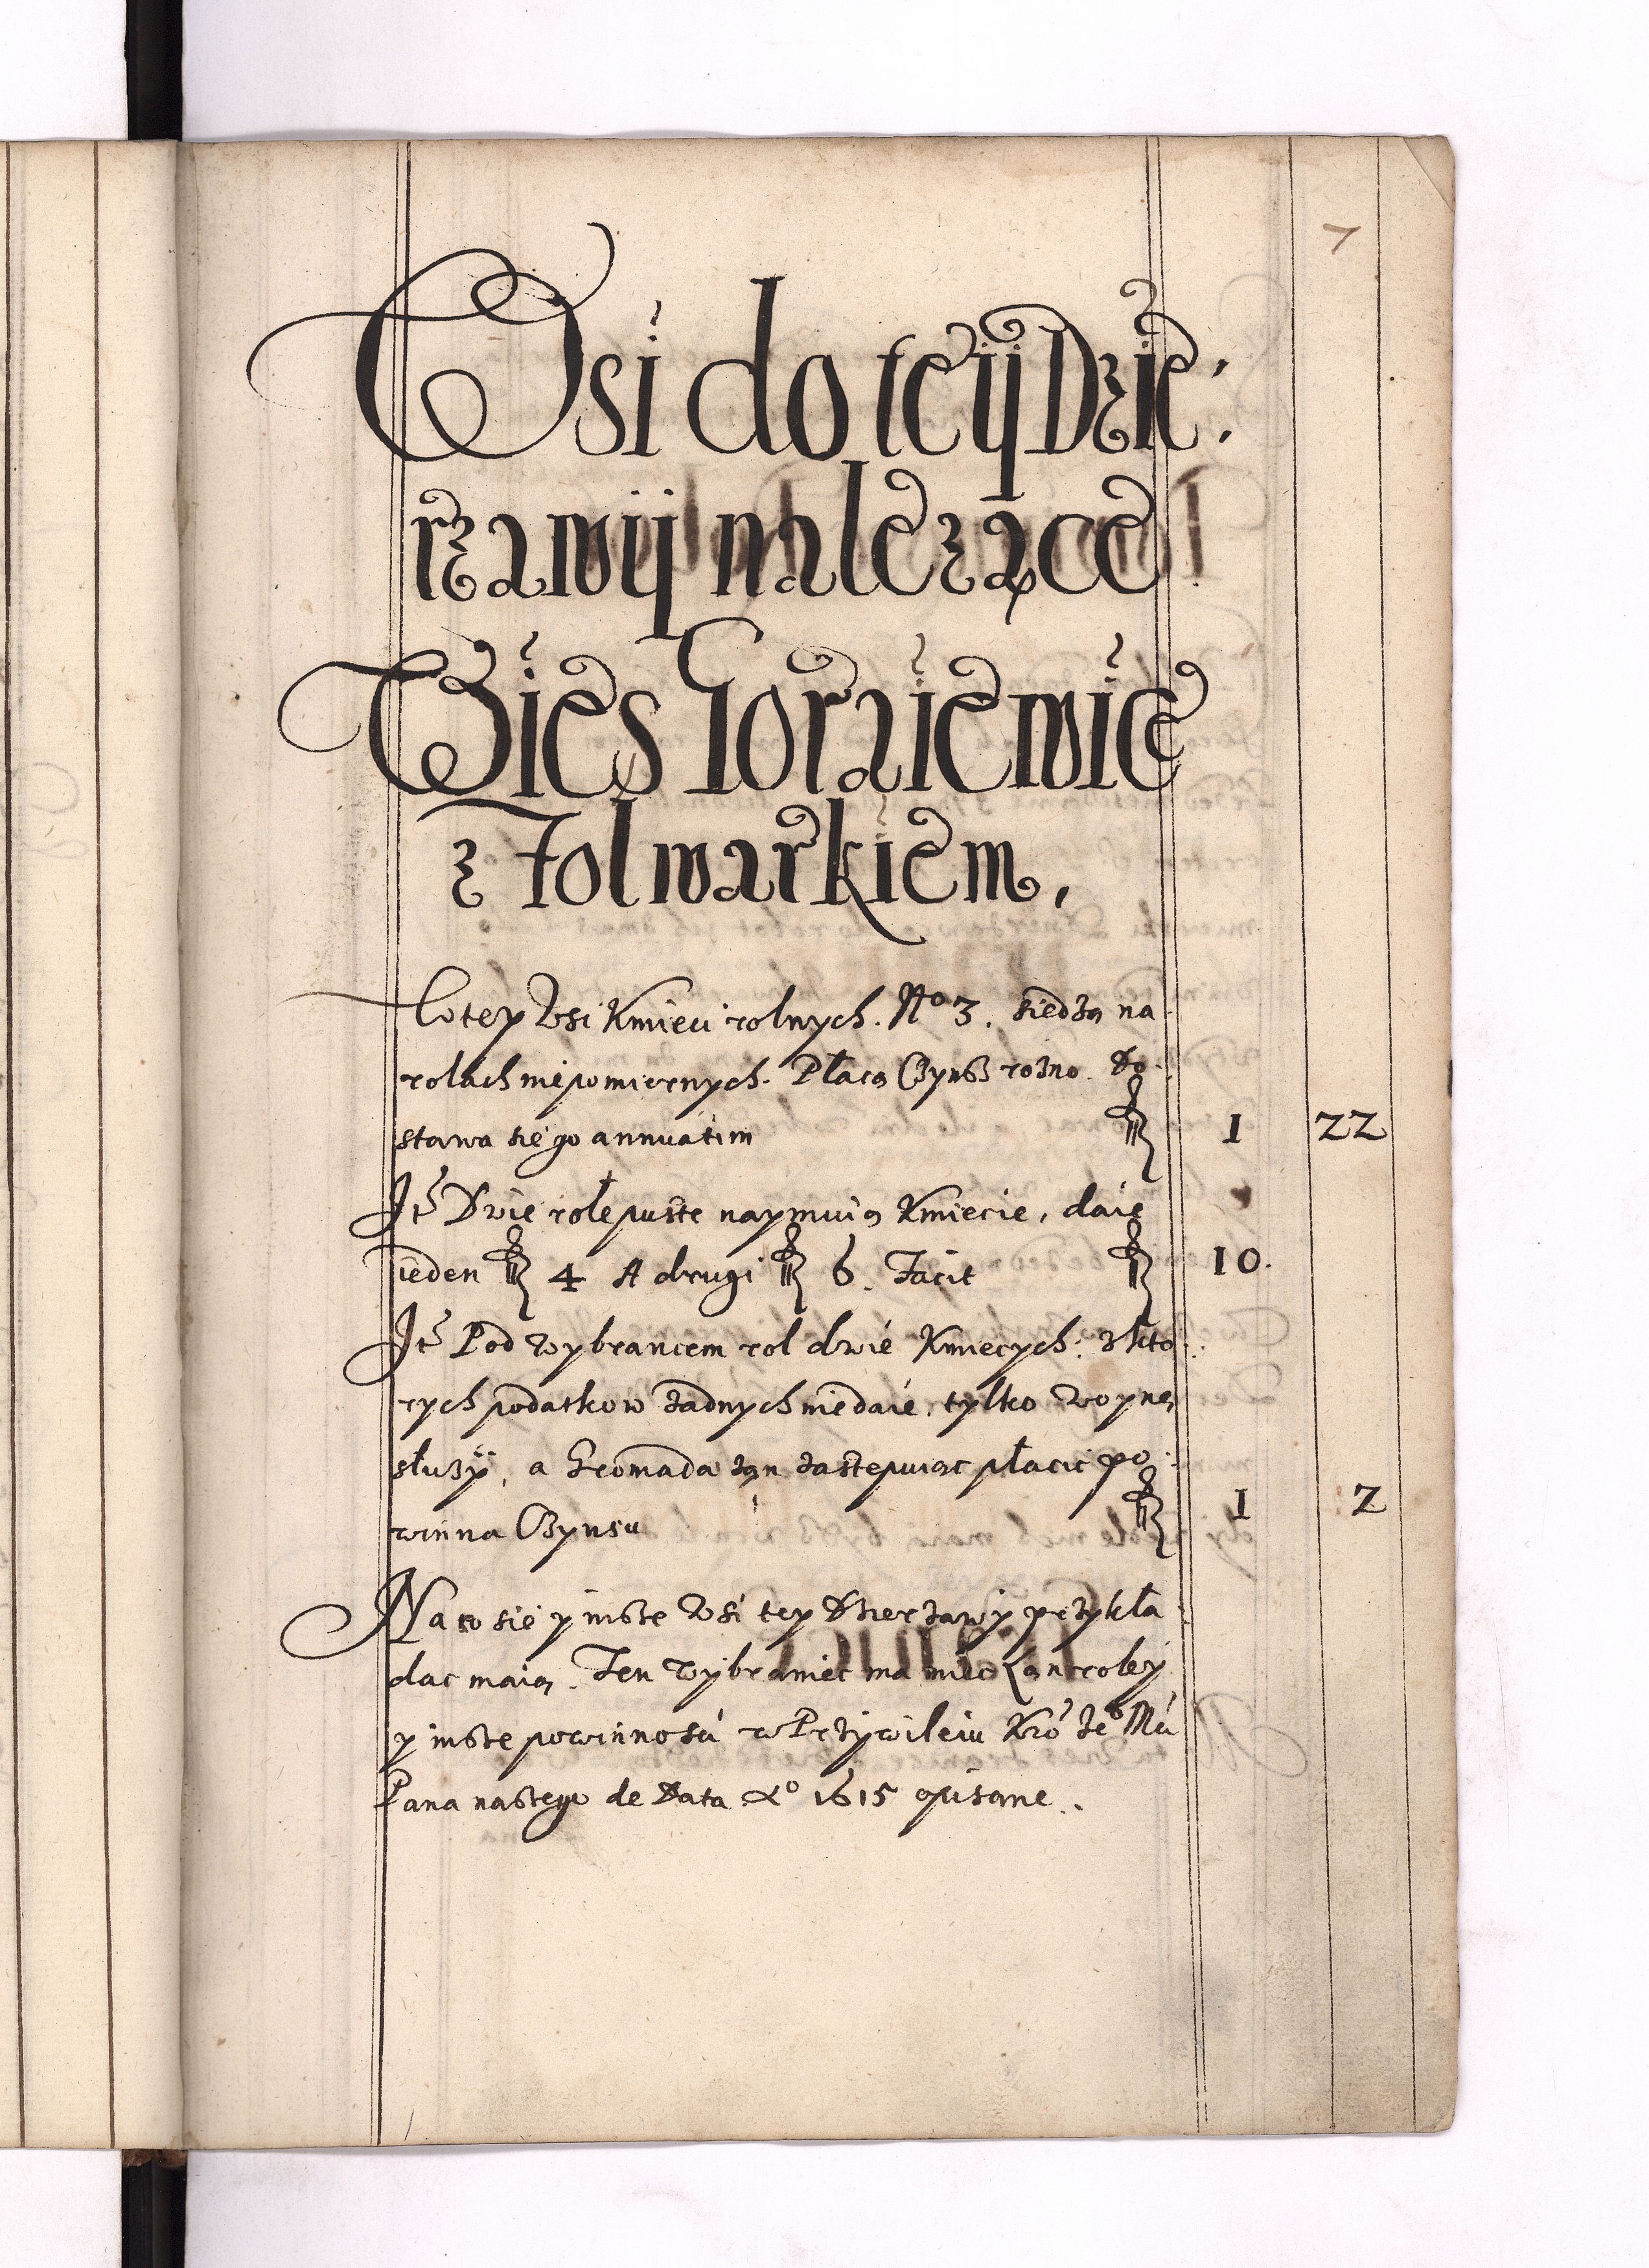 7
Wsi do teÿ Dzie:
rzawÿ nalezące
Wies Goraiewice
z Folwarkiem,
W tey Wsi Kmieci rolnych. No 3. siedzą na
rolach niepomiernych. Płacą Czynsz rozno. Do:
stawa sie go annuatim fl 1 22
Itē Dwie role puste naymuią Kmiecie, daie
ieden fl 4 A drugi fl 6. Facit fl 10.
Itē Pod Wybrancem rol dwie Kmiecych: z kto:
rych podatkow zadnych nie daie, tylko Woynę
słuzÿ, a Gromada zań zastępuiąc płacic po:
winna Czynsu fl 1 2
Na co sie y insze Wsi tey Dzierzawy przykła:
dac maią. Ten Wybraniec ma miec Łan roley
y insze powinnosci w Przywileiu Kro Je Mci
Pana naszego de Data Ao 1615 opisane.